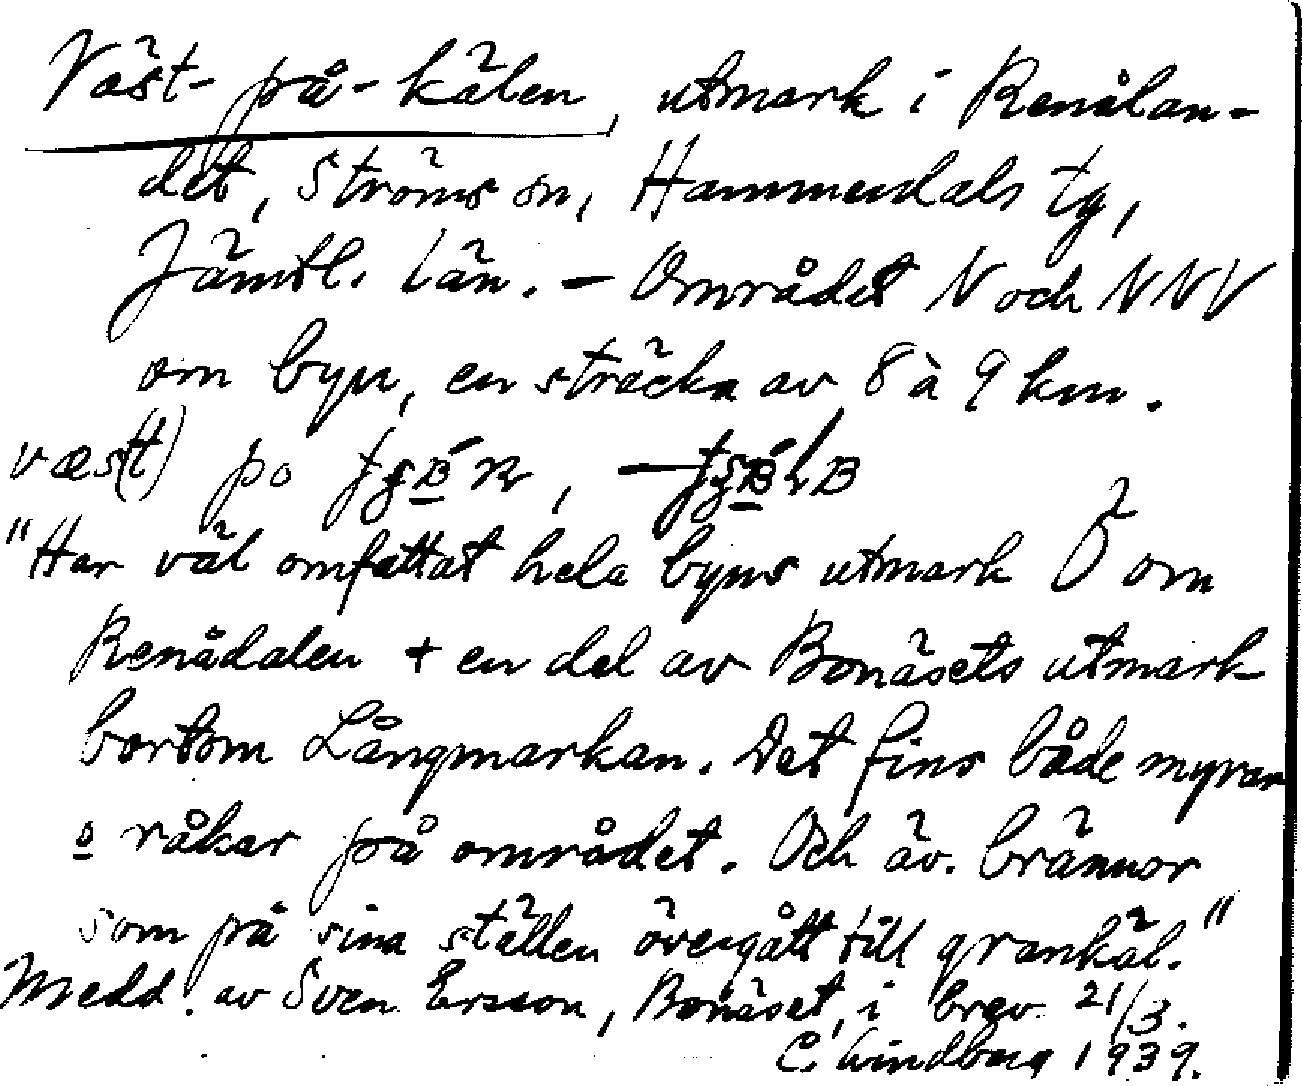 Väst-på-kälen, utmark i Renålan-
det, Ströms sn, Hammerdals tg,
Jämtl. län. – Området N och NNV
om byn, en sträcka av 8 à 9 km.
væs(t) po
"Har väl omfattat hela byns utmark Ö om
Renådalen + en del av Bonäsets utmark
bortom Långmarkan. Det fins både myrar
o råkar på området. Och äv. brännor
som på sina ställen övergått till grankäl."
Medd. av Sven Ersson, Bonäset, i brev 21/3.
C. Lindberg 1939.